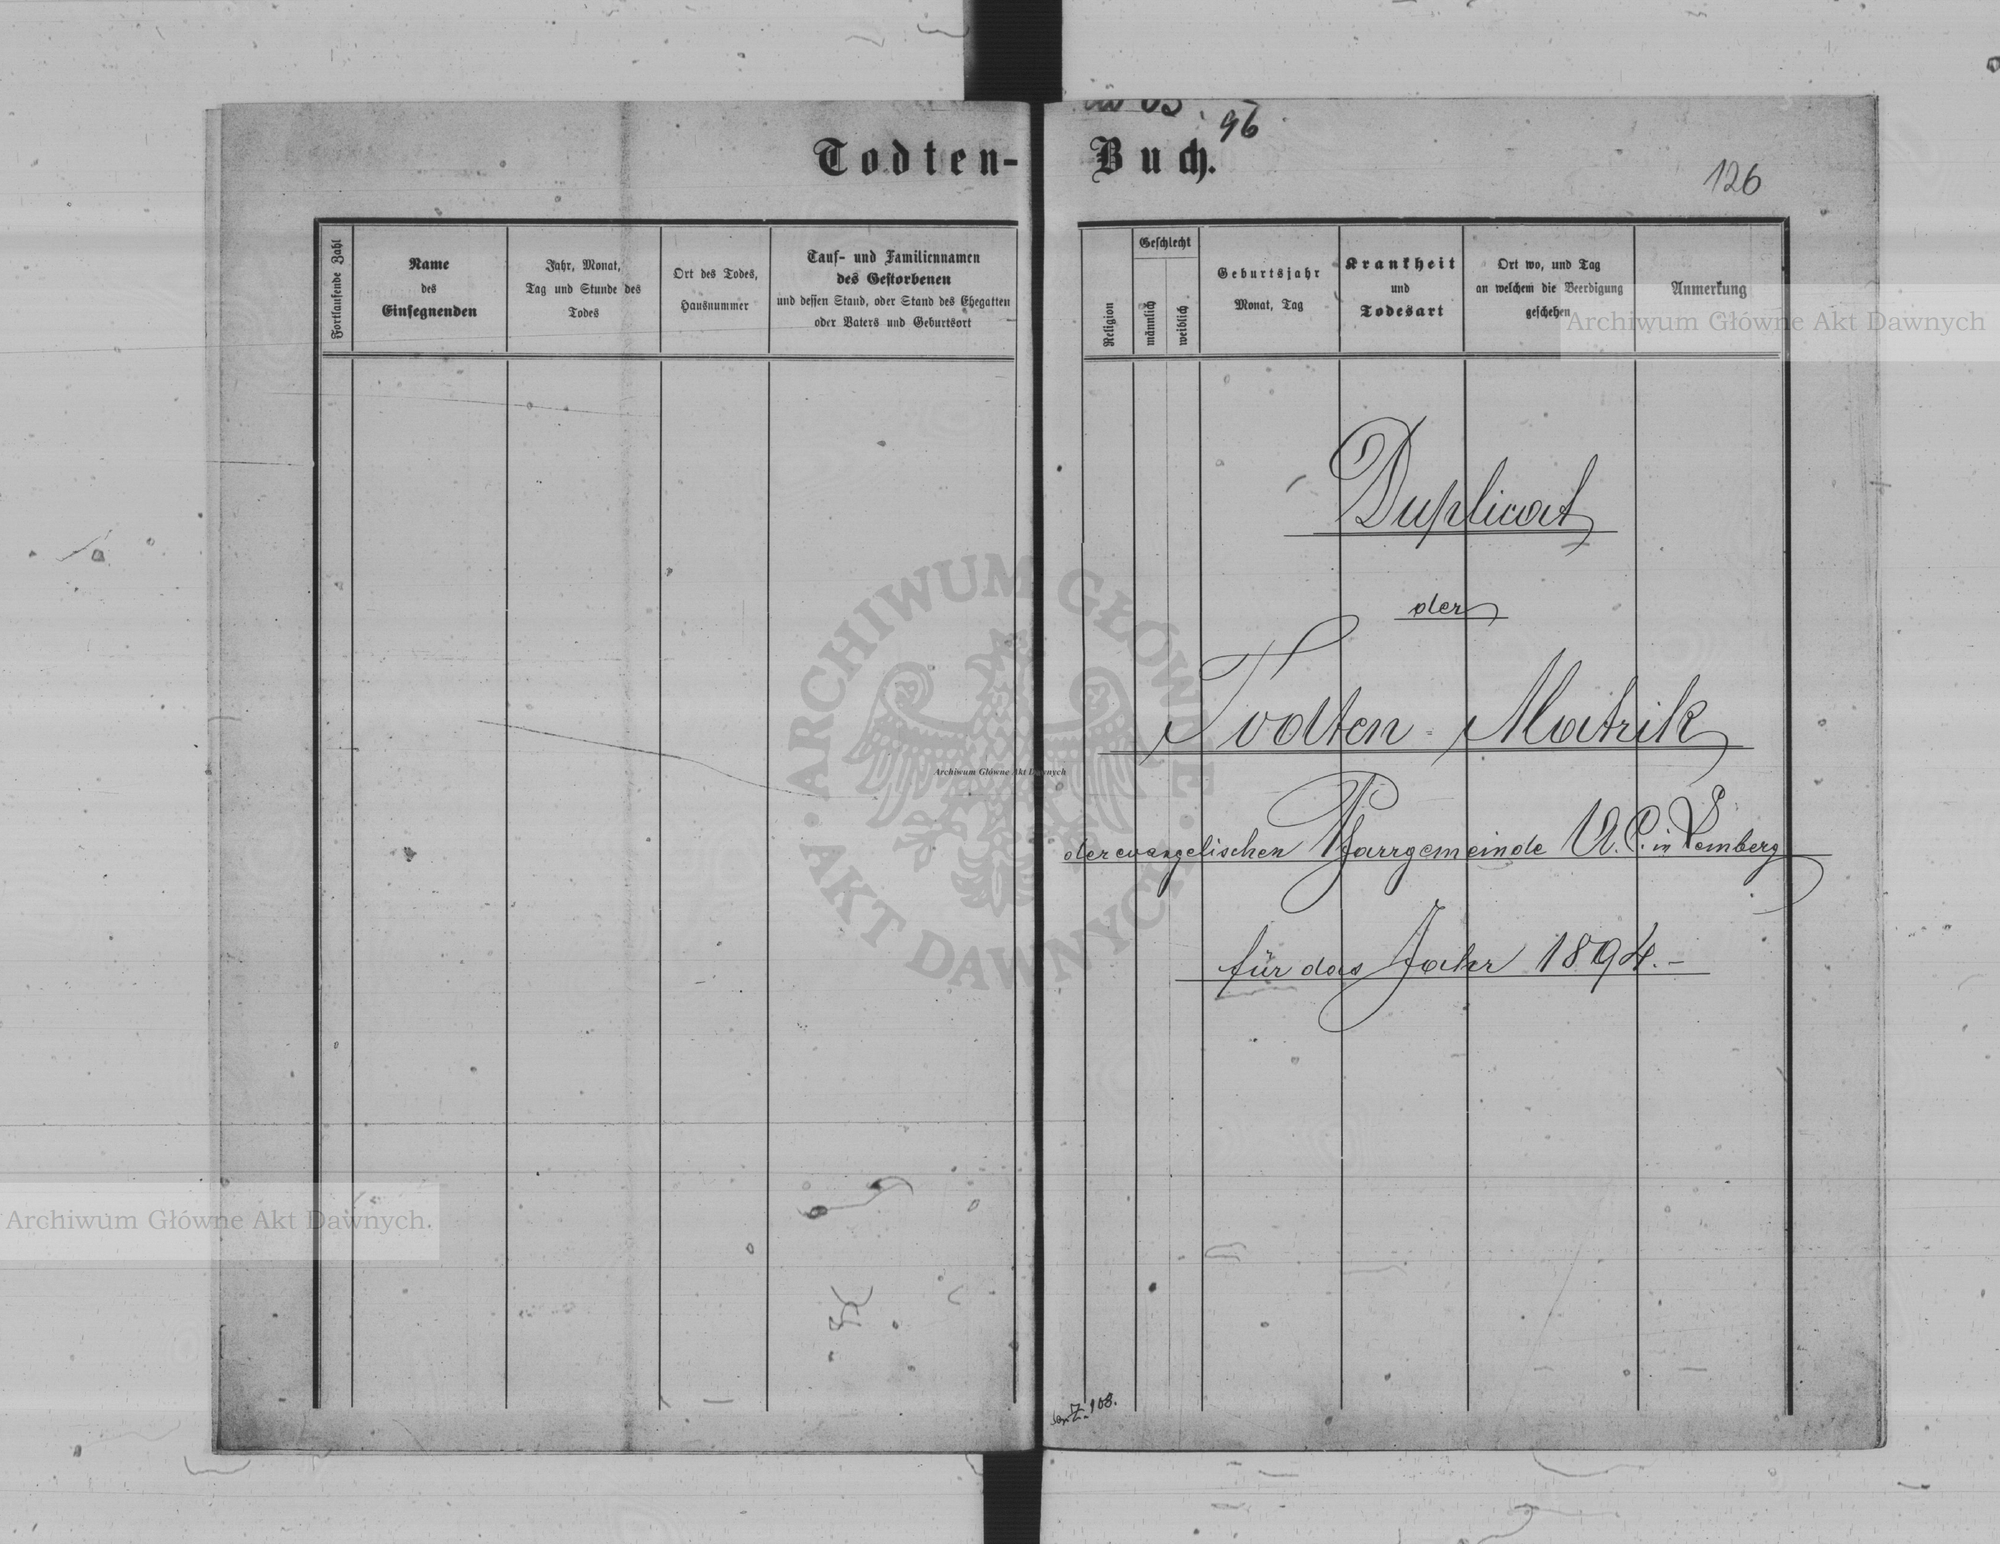 96
Todten-Buch.
126
Fortlaufende Zahl
Name
des
Einsegnenden
Jahr, Monat,
Tag und Stunde des
Todes
Ort des Todes,
Hausnummer
Tauf- und Familiennamen
des Gestorbenen
und dessen Stand, oder Stand des Ehegatten
oder Vaters und Geburtsort
Religion
Geschlecht
männlich
weiblich
Geburtsjahr
Monat, Tag
Krankheit
und
Todesart
Ort wo, und Tag
an welchem die Beerdigung
geschehen
Anmerkung
Archiwum Główne Akt Dawnych
Duplicat
der
Todten-Matrik
der evangelischen Pfarrgemeinde A. C. in Lemberg
für das Jahr 1894.-
ARCHIWUM GŁÓWNE AKT DAWNYCH
Archiwum Główne Akt Dawnych
Archiwum Główne Akt Dawnych.
Z. 108.